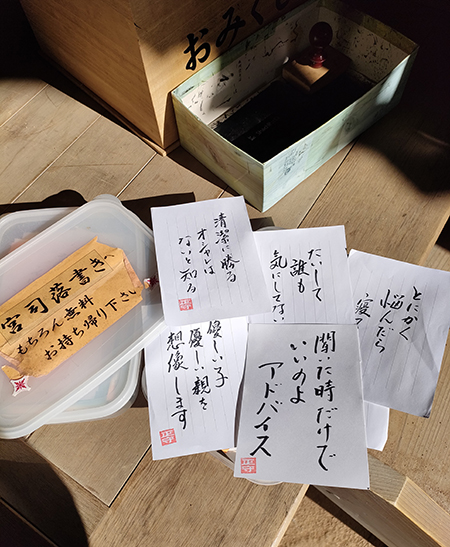 おみく
宮司落書き
もちろん無料
お持ち帰り下さい
清潔に勝る
オシャレは
ないと知る
たいして
誰も
気にしてない
とにかく
悩んだら
寝
優しい子
優しい親を
想像します
聞いた時だけで
いいのよ
アドバイス